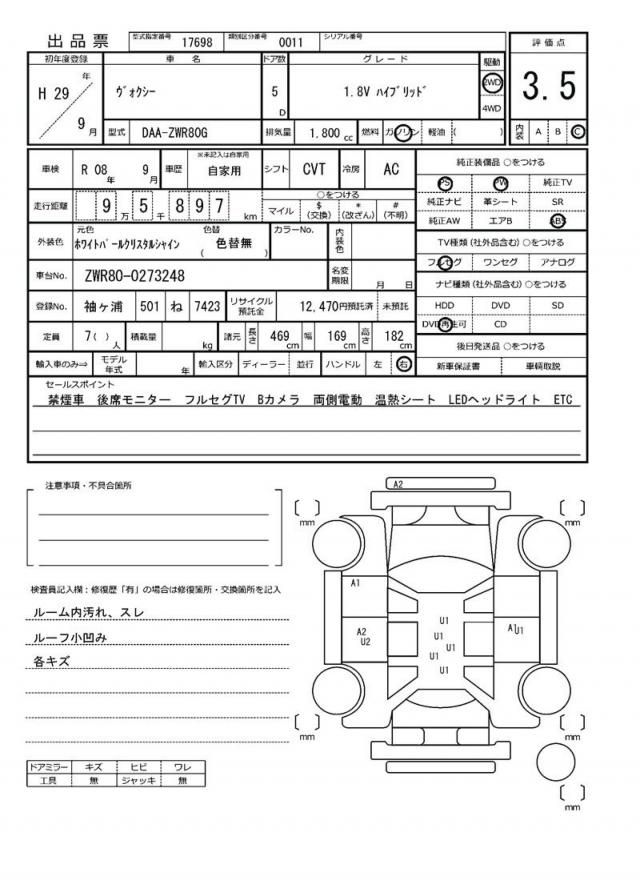 出品票 型式指定番号 17698 類別区分番号 0011 シリアル番号
初年度登録 車名 ドア数 グレード 駆動 評価点
H 29 年 9 月 ヴォクシー 5 D 1.8V ハイブリッド 2WD 4WD 3.5
型式 DAA-ZWR80G 排気量 1,800 cc 燃料 ガソリン 軽油 ( ) 内装 A B C
車検 R 08 年 9 月 車歴 ※未記入は自家用 自家用 シフト CVT 冷房 AC
走行距離 9 5 万 8 9 7 千 km ○をつける マイル $ (交換) * (改ざん) # (不明)
外装色 元色 ホワイトパールクリスタルシャイン 色替 ( 色替無 ) カラーNo. 内装色
車台No. ZWR80-0273248 名変期限 月 日
登録No. 袖ヶ浦 501 ね 7423 リサイクル預託金 12,470円預託済 未預託
定員 7( ) 人 積載量 kg 諸元 長さ 469 cm 幅 169 cm 高さ 182 cm
輸入車のみ⇒ モデル年式 年 輸入区分 ディーラー 並行 ハンドル 左 右
純正装備品 ○をつける
PS PW 純正TV
純正ナビ 革シート SR
純正AW エアB ABS
TV種類(社外品含む) ○をつける
フルセグ ワンセグ アナログ
ナビ種類(社外品含む) ○をつける
HDD DVD SD
DVD再生可 CD
後日発送品 ○をつける
新車保証書 車輌取説
セールスポイント
禁煙車 後席モニター フルセグTV Bカメラ 両側電動 温熱シート LEDヘッドライト ETC
注意事項・不具合箇所
検査員記入欄:修復歴「有」の場合は修復箇所・交換箇所を記入
ルーム内汚れ、スレ
ルーフ小凹み
各キズ
ドアミラー キズ ヒビ ワレ
工具 無 ジャッキ 無
A2
mm
mm
A1
U1
A2 U2
U1
U1
U1
U1
U1
A1 U1
mm
mm
mm